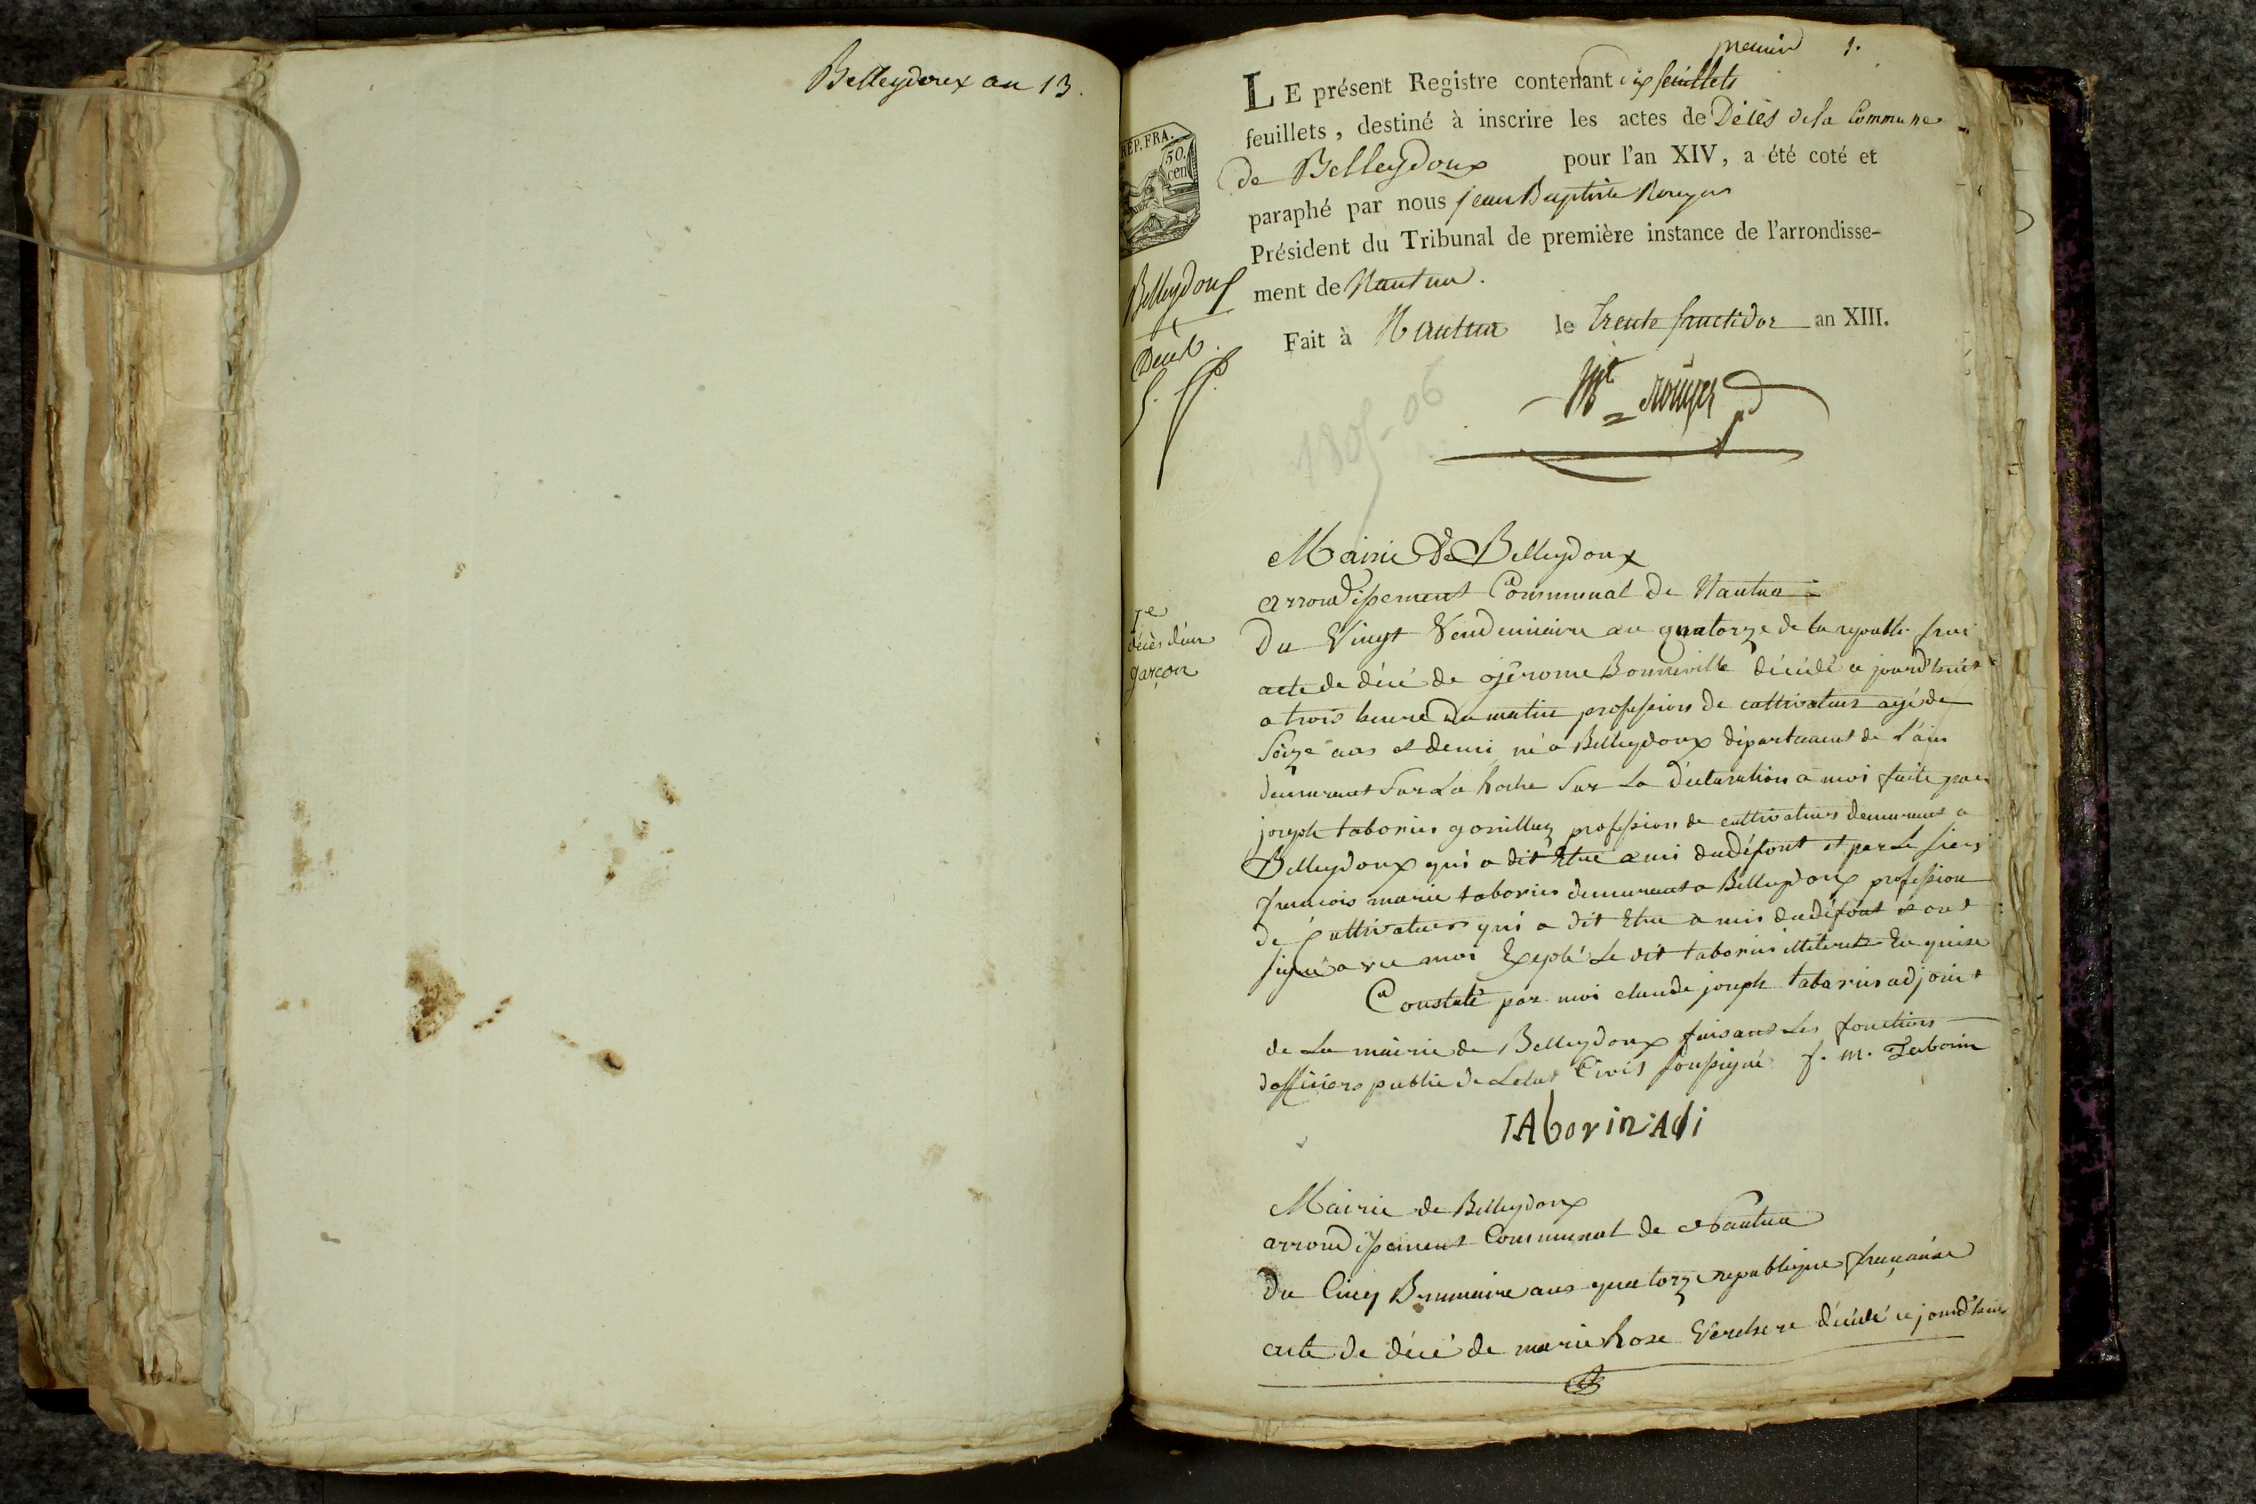 Belleydoux an 13.
premier 1.
LE présent Registre contenant dix feuillets
feuillets, destiné à inscrire les actes de Décès de la Commune
de Belleydoux pour l'an XIV, a été coté et
paraphé par nous jean Baptiste Rouyer
Président du Tribunal de première instance de l'arrondisse-
ment de Nantua.
Fait à Nantua le trente fructidor an XIII.
REP. FRA.
50.
cen
Belleydoux
Décès.
Rouyer
1805-06
Mairie De Belleydoux
arrondissement Communal de Nantua
1e
décès d'un
garçon
Du Vingt Vendemiaire an quatorze de la republi. frai
acte de décé de jérome Bonneville décédé ce jourd'huit
a trois heure du matin profession de cultivateur agé de
Seize ans et demi né a Belleydoux département de l'ain
demeurant Sur La Roche Sur La déclaration a moi faite par
joseph taborin gonilluz profession de cultivateur demeurant a
Belleydoux qui a dit Etre ami du défont et par Le sieur
francois marie taborin demeurant a Belleydoux profession
de Cultivateur qui a dit Etre ami du défont et ont
signé avec moi Exepté Le dit taborin illiteret Enquise
Constaté par moi claude joseph taborin adjoint
de La mairie de Belleydoux faisant Les fonctions
dofficier public de Letat Civil soussigné f. m. Taborin
TAborin Adi
Mairie de Belleydoux
arrondissement Communal de Nantua
Du Cinq Brumaire ans quatorze republique francaise
acte de décé de marie Rose Verchere décédé ce jourd'hui